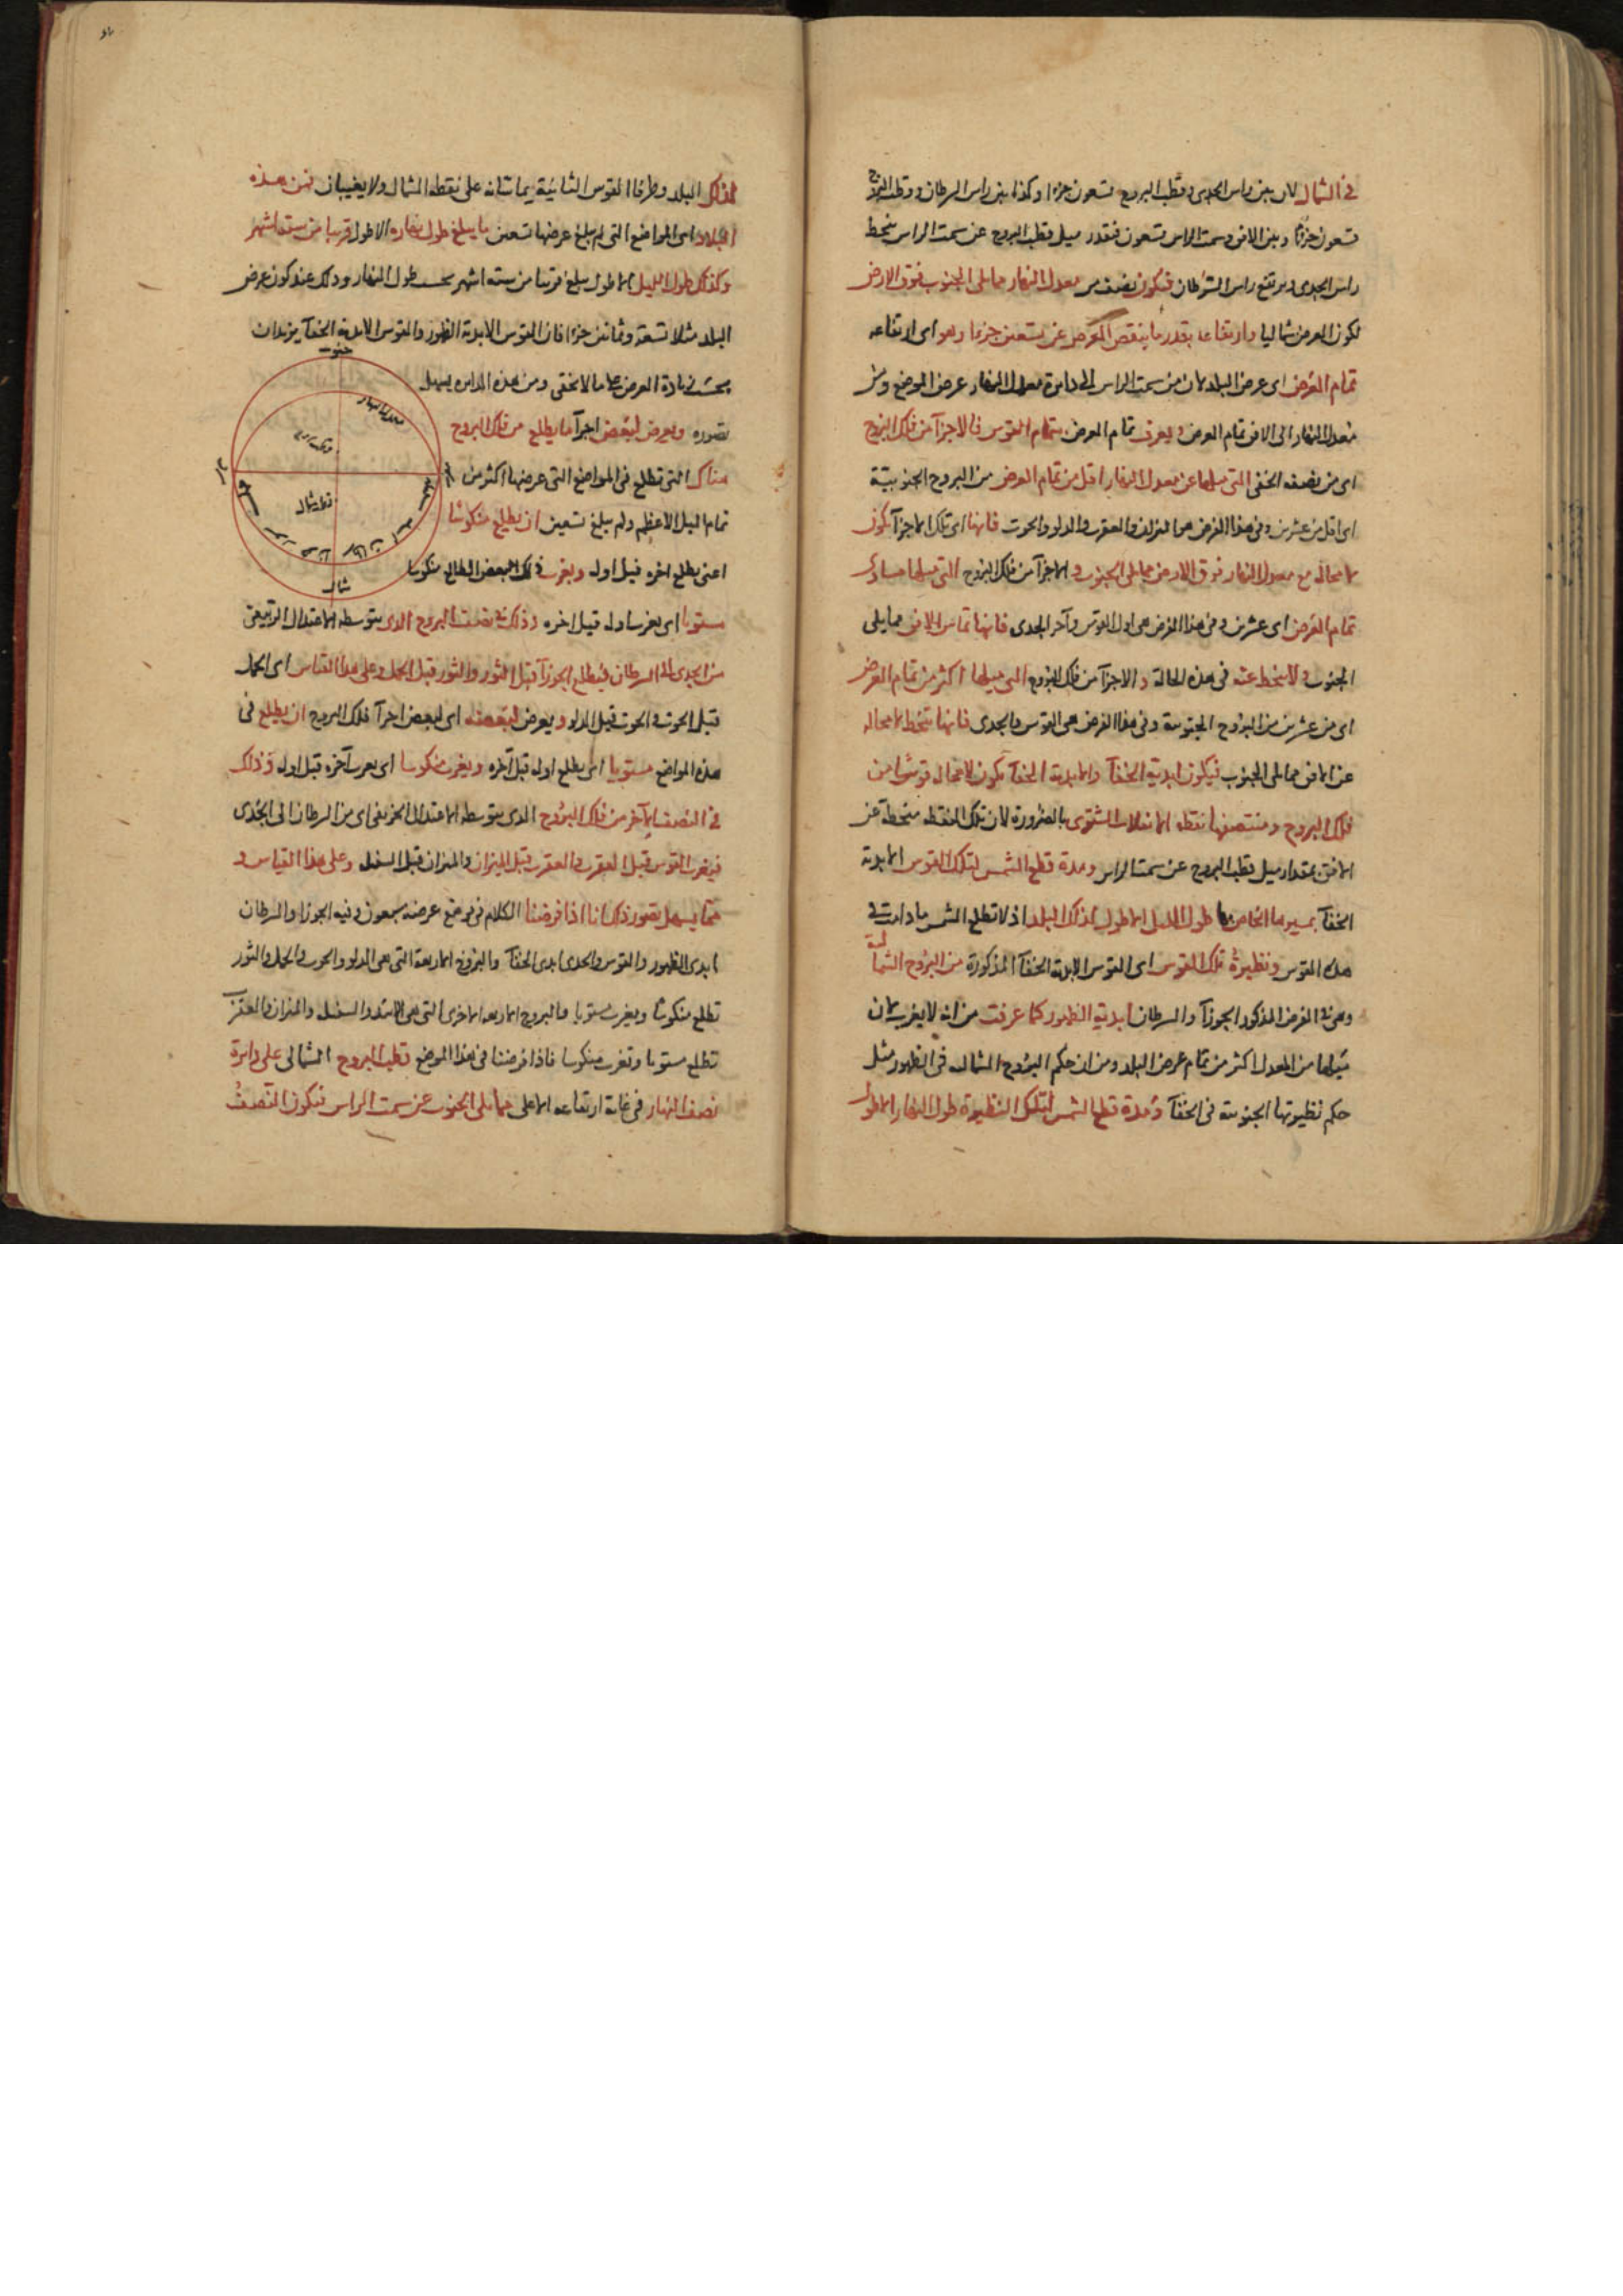 في الشمال لان بين راس الجدى وقطب البروج تسعون جزءا وكذا بين راس السرطان وقطب البروج
تسعون جزءا وبين الافق وسمت الراس تسعون فبقدر ميل قطب البروج عن سمت الراس ينحط
راس الجدى ويرتفع راس السرطان فيكون نصف من معدل النهار مما يلى الجنوب فوق الارض
لكون العرض شماليا وارتفاعه بقدر ما ينقص العرض عن تسعين جزءا وهو اى ارتفاعه
تمام العرض اى عرض البلد لان من سمت الراس الى دايرة معدل النهار عرض الموضع ومن
معدل النهار الى الافق تمام العرض ويعرف تمام العرض بتمام القوس فالاجزآ من فلك البروج
اى من نصفه الخفى التى ميلها عن معدل النهار اقل من تمام العرض من البروج الجنوبية
اى اقل من عشرين وفى هذا الفرض هى الميزان والعقرب والدلو والحوت فانها اى تلك الاجزآ تكون
لا محالة مع معدل النهار فوق الارض مما يلى الجنوب والاجزآ من فلك البروج التى ميلها مساو لـ
تمام العرض اى عشرين وفى هذا الفرض هى اول القوس وآخر الجدى فانها تماس الافق مما يلى
الجنوب ولا ينحط عنه فى هذه الحالة والاجزآ من فلك البروج التى ميلها اكثر من تمام العرض
اى من عشرين من البروج الجنوبية وفى هذا الفرض هى القوس والجدى فانها تنحط لا محالة
عن الافق مما يلى الجنوب فيكون ابدية الخفآ والابدية الخفآ تكون لا محالة قوسا من
فلك البروج ومنتصفها نقطة الانقلاب الشتوى بالضرورة لان تلك النقطة منحطة عن
الافق بمقدار ميل قطب البروج عن سمت الراس ومدة قطع الشمس لتلك القوس الابدية
الخفآ بمسيرها الخاص بها طول الليل الاطول لذلك البلد اذ لا تطلع الشمس ما دامت فى
هذه القوس ونظيرة تلك القوس اى القوس الابدية الخفآ المذكورة من البروج الشمالية
وهى فى الفرض المذكور الجوزآ والسرطان ابدية الظهور كما عرفت من انه لا يغرب لان
ميلها من المعدل اكثر من تمام عرض البلد ومن ان حكم البروج الشمالية فى الظهور مثل
حكم نظيرتها الجنوبية فى الخفآ ومدة قطع الشمس لتلك النظيرة طول النهار الاطول
لذلك البلد وطرفا القوس الثانية يماسانه على نقطة الشمال ولا يغيبان فمن هذه
البلاد اى المواضع التى لم يبلغ عرضها تسعين ما يبلغ طول نهاره الاطول قريبا من ستة اشهر
وكذلك طول الليل الاطول يبلغ قريبا من ستة اشهر بحسب طول النهار وذلك عند كون عرض
البلد مثلا تسعة وثمانين جزءا فان القوس الابدية الظهور والقوس الابدية الخفآ يزيدان
بحسب زيادة العرض كما لا يخفى ومن هذه الدايرة يسهل
تصوره ويعرض لبعض اجزآ ما يطلع من فلك البروج
هناك التى تطلع فى المواضع التى عرضها اكثر من
تمام الميل الاعظم ولم يبلغ تسعين ان يطلع منكوسا
اعنى يطلع اخره قبل اوله ويغرب ذلك البعض الطالع منكوسا
مستويا اى يغرب اوله قبل اخره وذلك فى نصف البروج الذى يتوسطه الاعتدال الربيعى
من الجدى الى السرطان فيطلع الجوزآ قبل الثور والثور قبل الحمل وعلى هذا القياس اى الحمل
قبل الحوت والحوت قبل الدلو ويعرض لبعضه اى لبعض اجزآ فلك البروج ان يطلع فى
هذه المواضع مستويا اى يطلع اوله قبل آخره ويغرب منكوسا اى يغرب آخره قبل اوله وذلك
فى النصف الآخر من فلك البروج الذى يتوسطه الاعتدال الخريفى اى من السرطان الى الجدى
فيغرب القوس قبل العقرب والعقرب قبل الميزان والميزان قبل السنبلة وعلى هذا القياس و
مما يسهل تصور ذلك انا اذا فرضنا الكلام فى موضع عرضه سبعون وفيه الجوزا والسرطان
ابدى الظهور والقوس والجدى ابدى الخفآ والبروج الاربعة التى هى الدلو والحوت والحمل والثور
تطلع منكوسا ويغرب مستويا والبروج الاربعة الاخرى التى هى الاسد والسنبلة والميزان والعقرب
تطلع مستويا وتغرب منكوسا فاذا فرضنا فى هذا الموضع قطب البروج الشمالى على دايرة
نصف النهار فى غاية ارتفاعه الاعلى مما يلى الجنوب عن سمت الراس فيكون النصف
جنوب
معدل النهار
قطب شمال
شمال